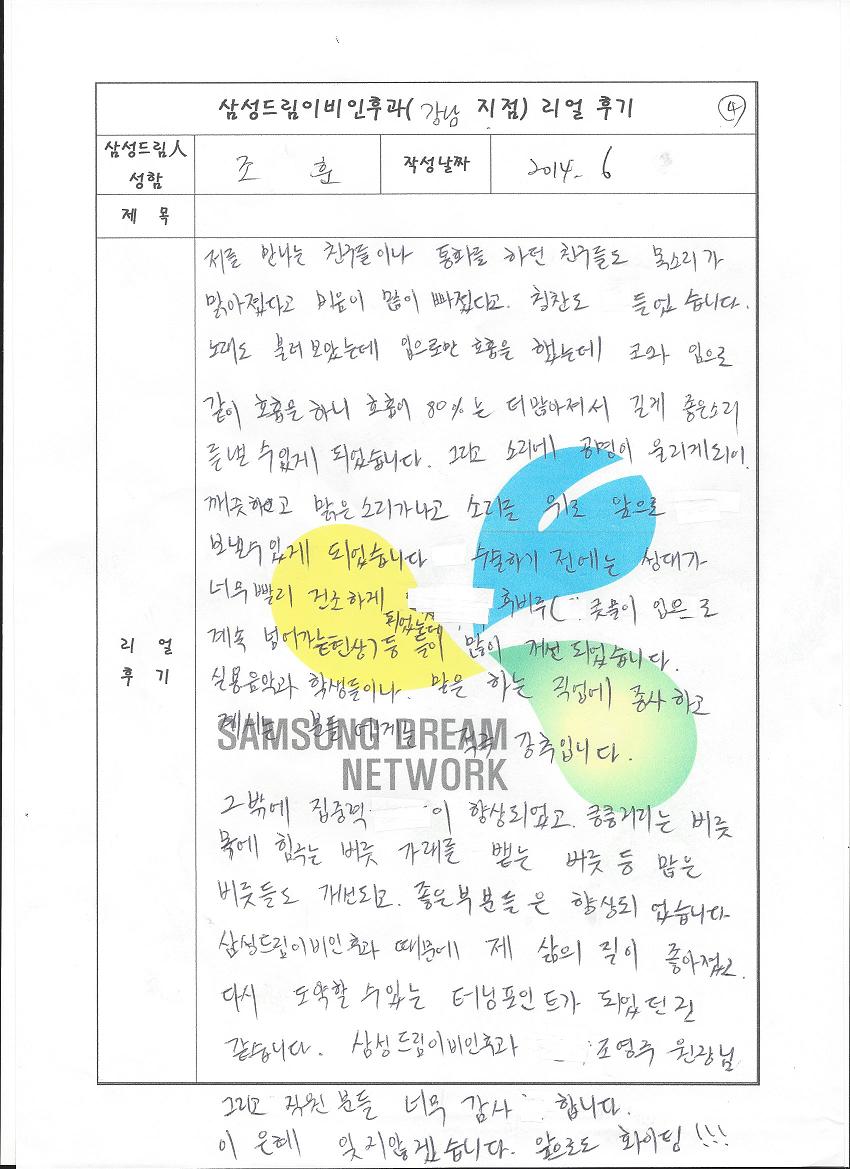 삼성드림이비인후과( 강남 지점) 리얼 후기 ④
삼성드림人 성함
조 훈
작성날짜
2014. 6
제 목
리 얼 후 기
저를 만나는 친구들이나 통화를 하던 친구들도 목소리가
맑아졌다고 비음이 많이 빠졌다고. 칭찬도 들었습니다.
노래도 불러보았는데 입으로만 호흡을 했는데 코와 입으로
같이 호흡을 하니 호흡이 80%는 더많아져서 길게 좋은소리
를낼 수있게 되었습니다. 그리고 소리에 공명이 울리게되어.
깨끗하고 맑은소리가나고 소리를 위로 앞으로
보낼수있게 되었습니다 수술하기 전에는 성대가
너무빨리 건조하게 되었는데 후비루( 콧물이 입으로
계속 넘어가는현상) 등 들이 많이 개선되었습니다.
실용음악과 학생들이나. 말을 하는 직업에 종사하고
계시는 분들에게는 적극 강추입니다.
SAMSUNG DREAM
NETWORK
그밖에 집중력 이 향상되었고. 킁킁거리는 버릇
목에 힘주는 버릇 가래를 뱉는 버릇 등 많은
버릇들도 개선되고. 좋은부분들은 향상되었습니다
삼성드림이비인후과 때문에 제 삶의 질이 좋아졌고.
다시 도약할 수있는 터닝포인트가 되었던것
같습니다. 삼성드림이비인후과 조영주 원장님
그리고 직원분들 너무 감사 합니다.
이 은혜 잊지않겠습니다. 앞으로도 화이팅!!!